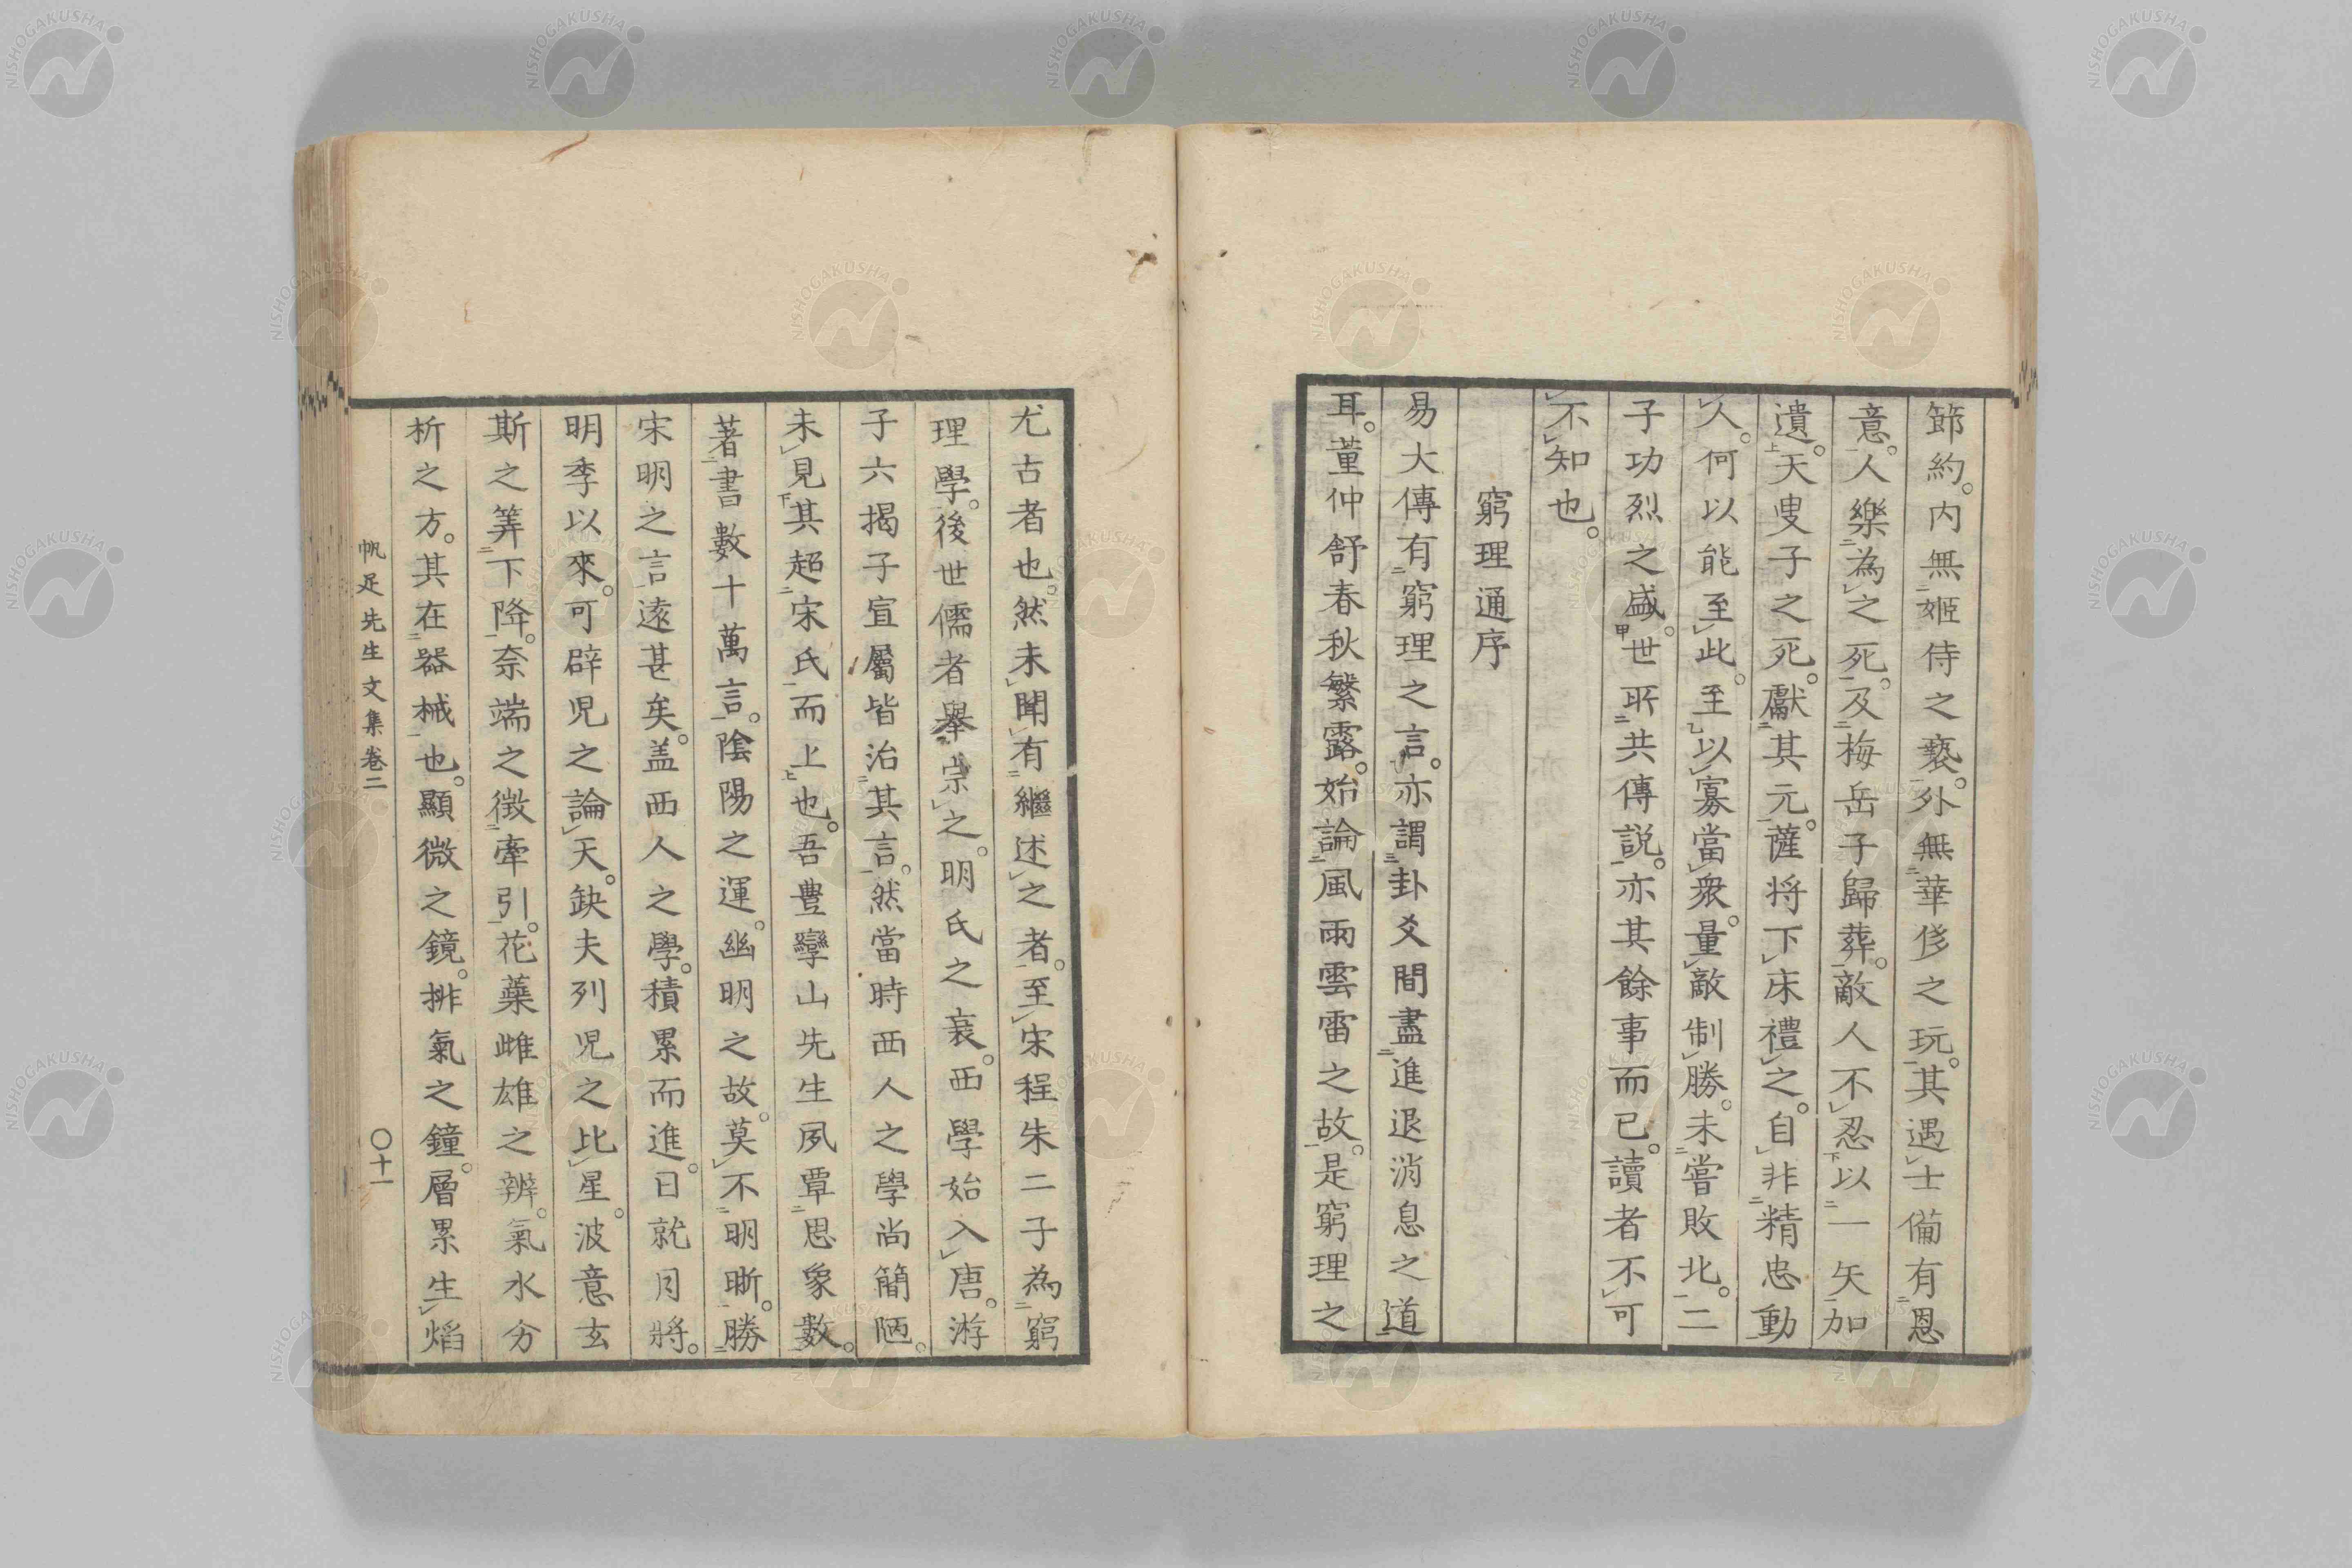 節約。内無姬侍之褻。外無華侈之玩。其遇士備有恩
意。人樂為之死。及梅岳子歸葬。敵人不忍以一矢加
遺。天叟子之死。獻其元。薩将下床禮之。自非精忠動
人。何以能至此。至以寡當衆。量敵制勝。未嘗敗北。二
子功烈之盛。世所共傳説。亦其餘事而已。讀者不可
不知也。
窮理通序
易大傳有窮理之言。亦謂卦爻間盡進退消息之道
耳。董仲舒春秋繁露。始論風雨雲雷之故。是窮理之
尤古者也。然未聞有繼述之者。至宋程朱二子為窮
理學。後世儒者舉宗之。明氏之衰。西學始入唐。游
子六揭子宣屬皆治其言。然當時西人之學尚簡陋。
未見其超宋氏而上也。吾豊孿山先生夙覃思象數。
著書數十萬言。陰陽之運。幽明之故。莫不明晰。勝
宋明之言遠甚矣。盖西人之學。積累而進。日就月將。
明季以來。可辟児之論天。鈌夫列児之比星。波意玄
斯之筭下降。奈端之徴牽引。花蘂雌雄之辨。氣水分
析之方。其在器械也。顯微之鏡。排氣之鐘。層累生焰
帆足先生文集卷二
〇十一
NISHOGAKUSHA